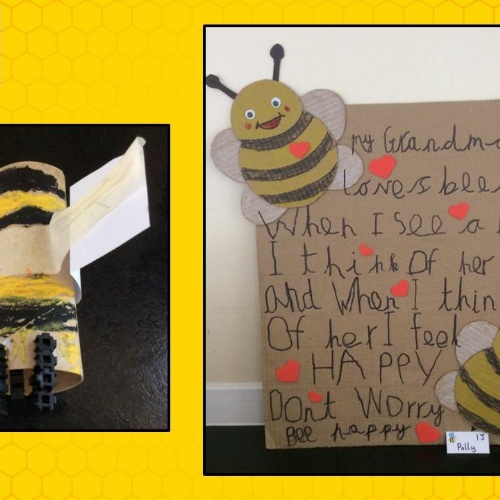 my Grandma
loves bees
When I see a
I think Of her
and When I think
Of her I feel
HAPPY
Dont Worry
Bee happy
1J
Polly